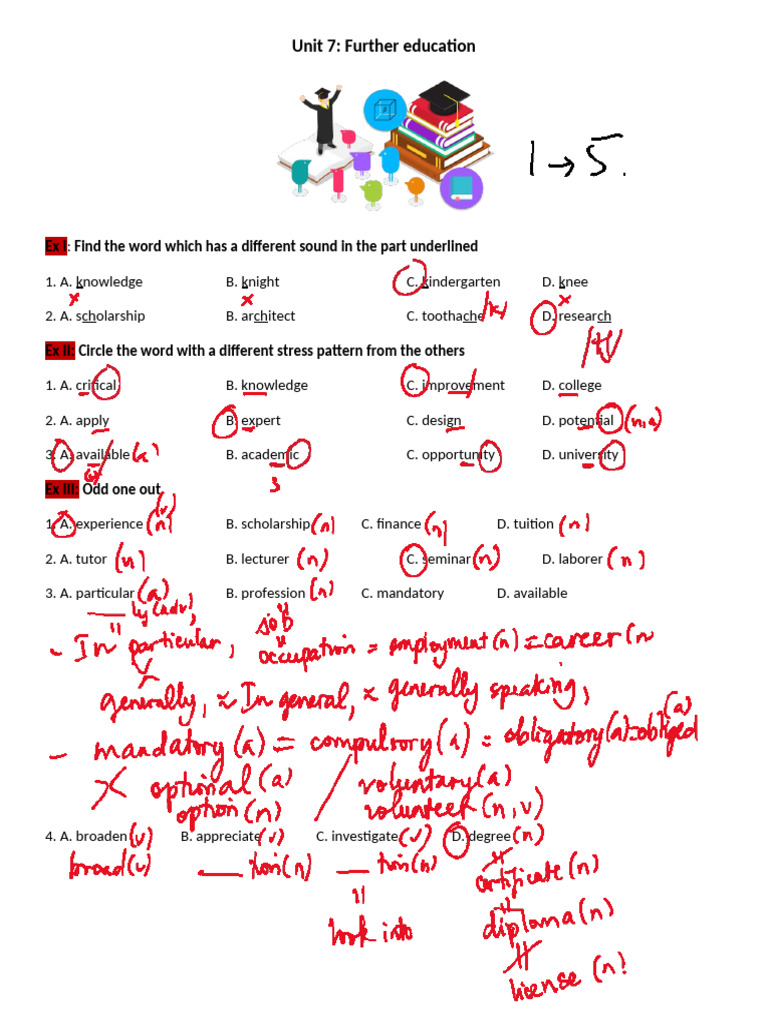 Unit 7: Further education
1 → 5.
Ex I: Find the word which has a different sound in the part underlined
1. A. knowledge B. knight C. kindergarten D. knee
x x x
2. A. scholarship B. architect C. toothache /k/ D. research
/tʃ/
Ex II: Circle the word with a different stress pattern from the others
1. A. critical B. knowledge C. improvement D. college
2. A. apply B. expert C. design D. potential (n,a)
3. A. available (a) B. academic C. opportunity D. university
3
Ex III: Odd one out
(v)
1. A. experience (n) B. scholarship (n) C. finance (n) D. tuition (n)
2. A. tutor (n) B. lecturer (n) C. seminar (n) D. laborer (n)
3. A. particular (a) B. profession (n) C. mandatory D. available
ly (adv)
job
- In particular, occupation = employment (n) = career (n
generally, ≈ In general, ≈ generally speaking,
- mandatory (a) = compulsory (a) = obligatory (a) = obliged (a)
X optional (a) / voluntary (a)
option (n) volunteer (n, v)
4. A. broaden (v) B. appreciate (v) C. investigate (v) D. degree (n)
broad (v) tion (n) tion (n) certificate (n)
look into diploma (n)
license (n)